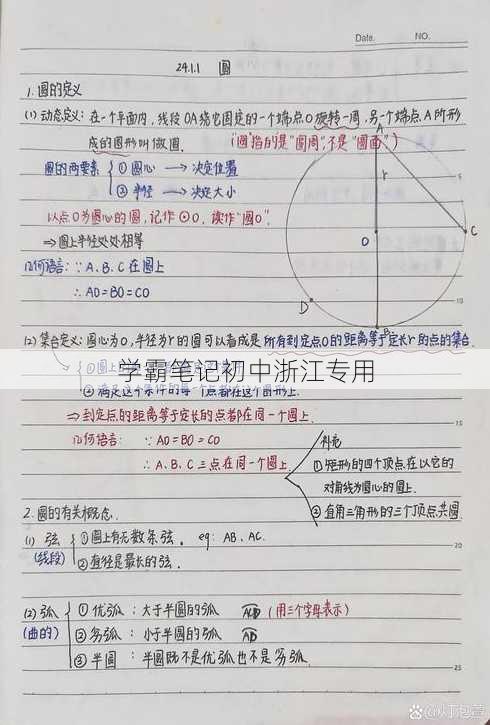 Date. NO.
24.1.1 圆
1.圆的定义
(1)动态定义:在一个平面内,线段OA绕它固定的一个端点O旋转一周,另一个端点A所形
成的图形叫做圆. ("圆"指的是"圆周"不是"圆面")
圆的两要素 ①圆心 → 决定位置
②半径 → 决定大小
以点O为圆心的圆,记作⊙O,读作"圆O".
⇒圆上半径处处相等
几何语言:∵A、B、C在圆上
∴AO=BO=CO
A
r
O
C
D
B
5
10
(2)集合定义:圆心为O,半径为r的圆可以看成是所有到定点O的距离等于定长r的点的集合.
学霸笔记初中浙江专用
①圆上
②满足这个条件的每一个点都在这个图形上.
⇒到定点的距离等于定长的点都在同一个圆上.
15
几何语言: ∵AO=BO=CO
∴A、B、C三点在同一个圆上.
补充
①矩形的四个顶点在以它的
对角线为圆心的圆上.
②直角三角形的三个顶点共圆
2.圆的有关概念.
(1)弦 ①圆上有无数条弦. eg: AB、AC.
20
(线段) ②直径是最长的弦.
(2)弧 ①优弧:大于半圆的弧 (用三个字母表示)
(曲的) ②劣弧:小于半圆的弧 AD
③半圆:半圆既不是优弧也不是劣弧.
25